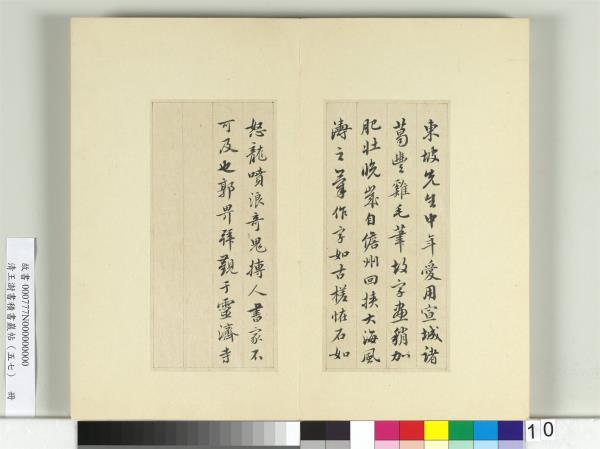 東坡先生中年愛用宣城諸
葛豐雞毛筆故字畫稍加
肥壯晚歲自儋州回挾大海風
濤之氣作字如古槎怪石如
怒龍噴浪奇鬼搏人書家不
可及也郭畀拜觀于靈濟寺
故書 000777N000000000
清王澍書積書巖帖（五七） 冊
10